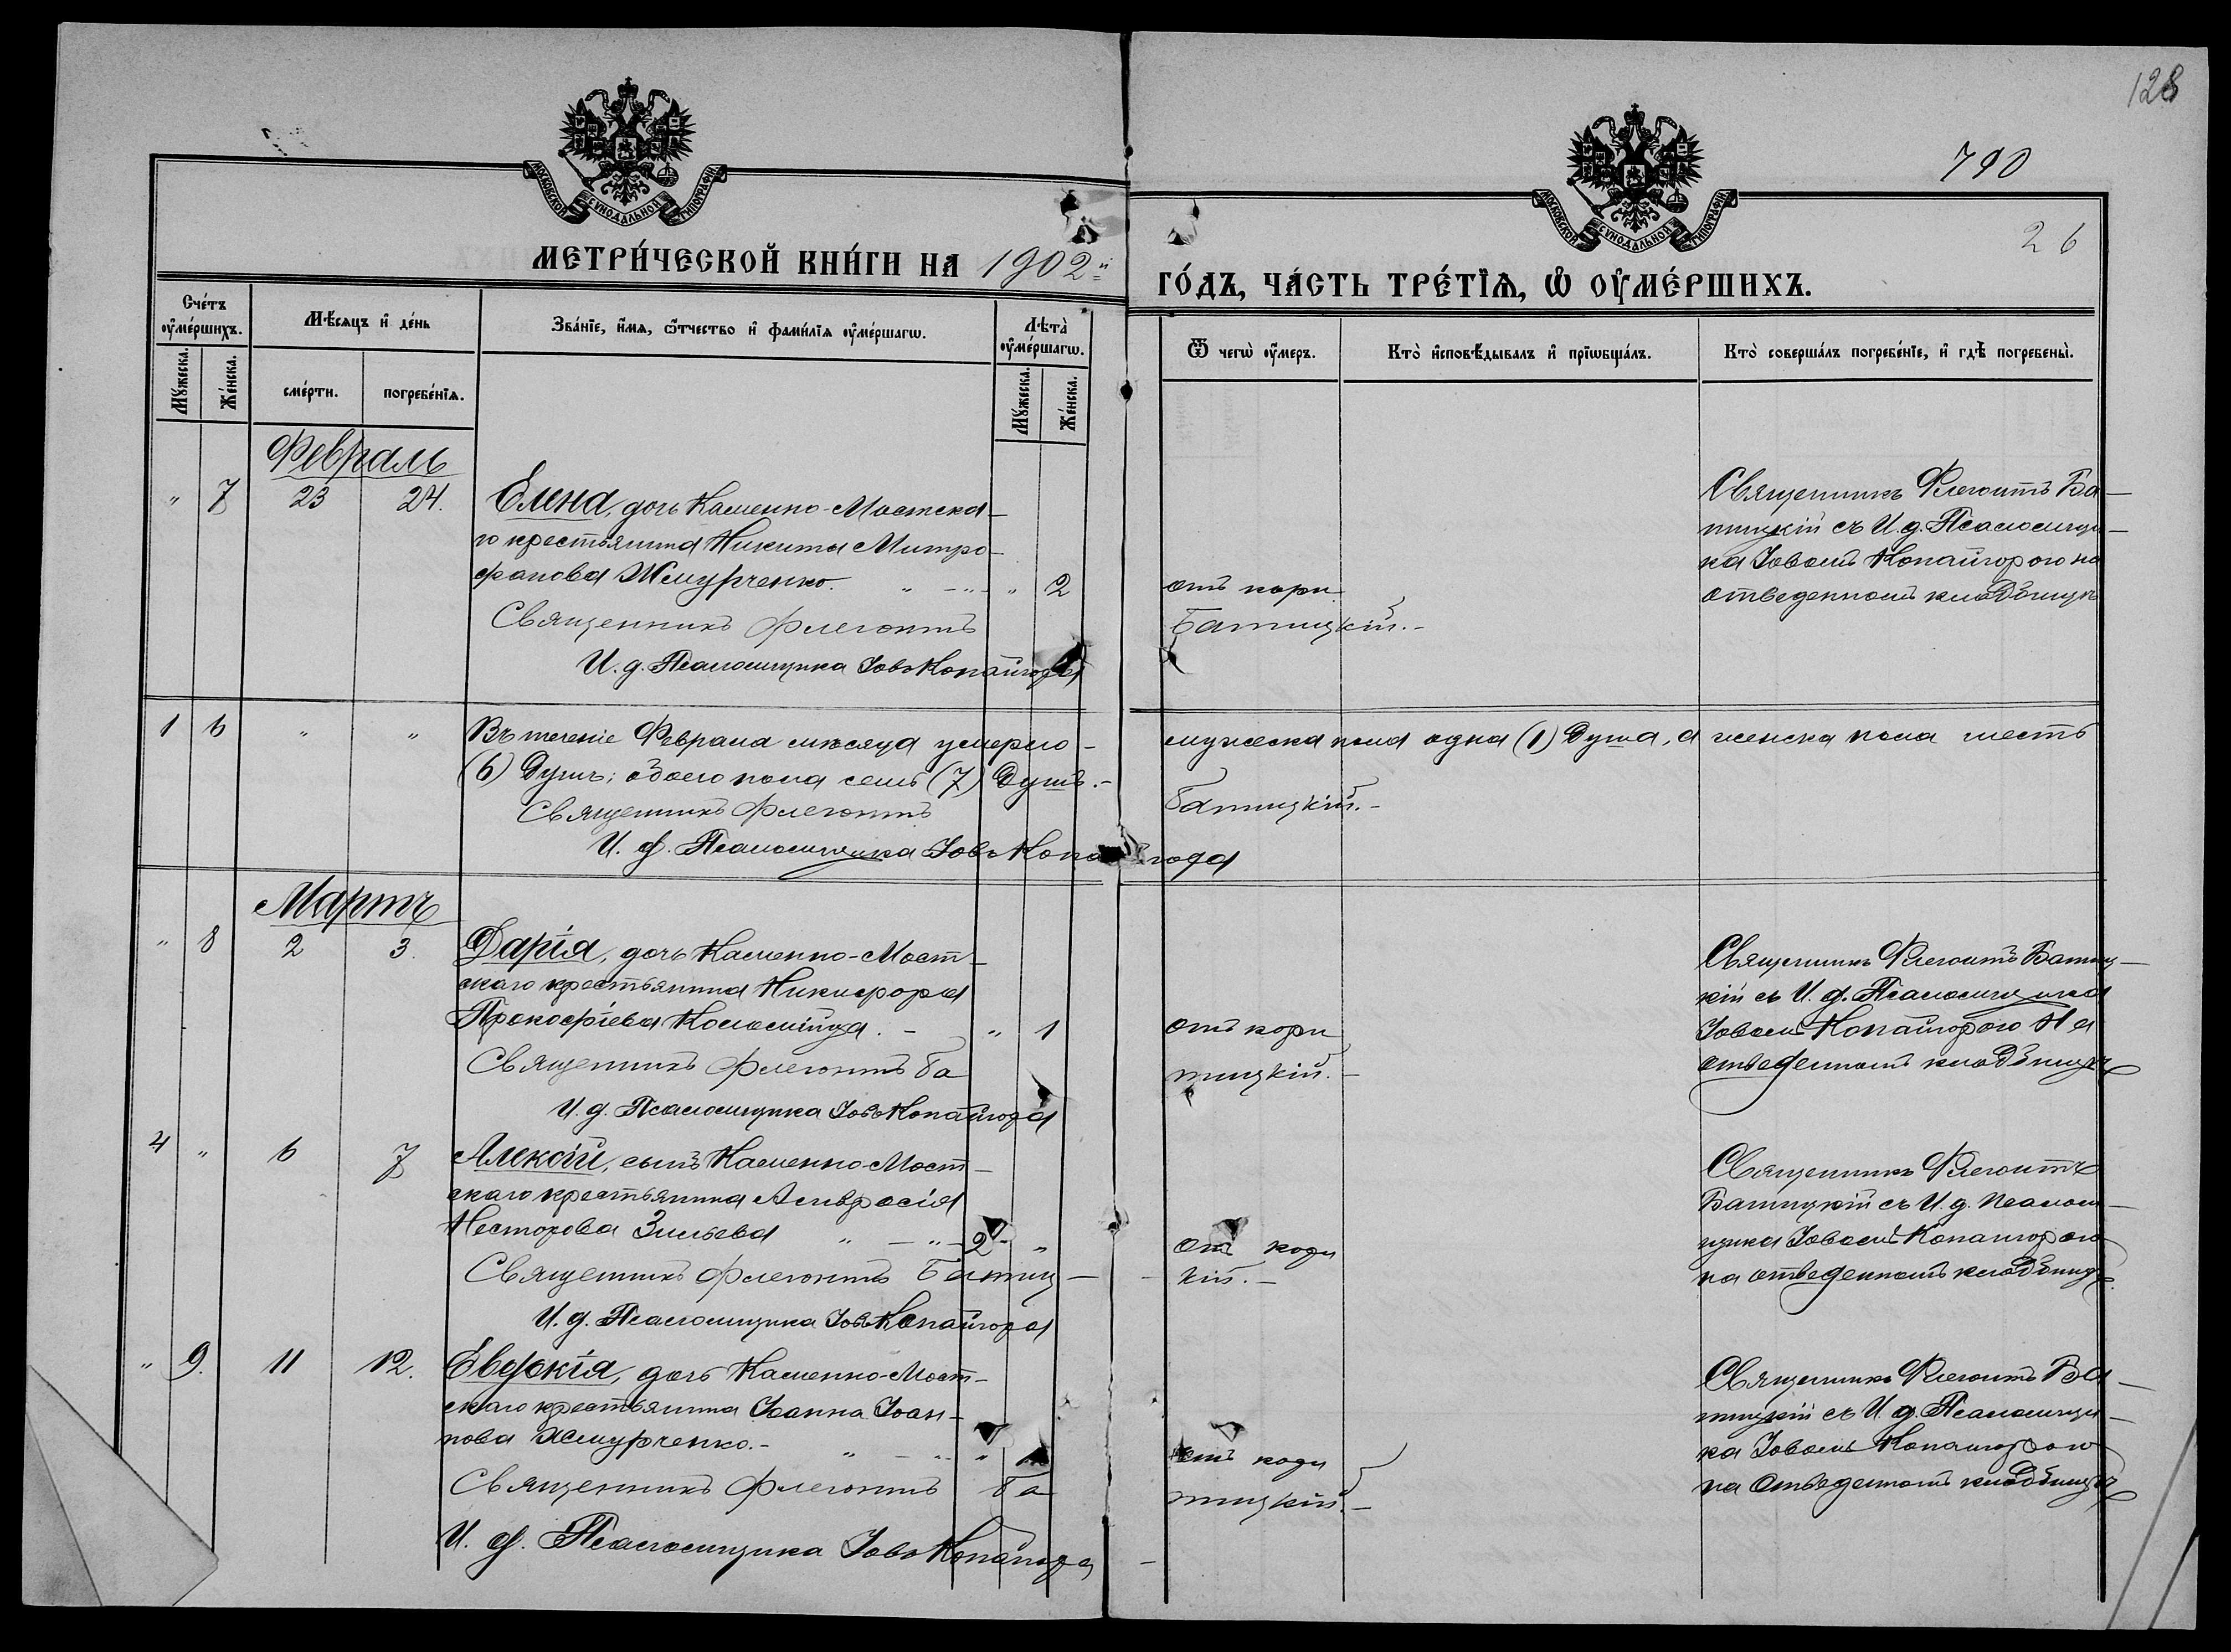 128
790
26
МОСКОВСКОЙ СУНОДАЛЬНОЙ ТИПОГРАФІИ
МОСКОВСКОЙ СУНОДАЛЬНОЙ ТИПОГРАФІИ
МЕТРИ́ЧЕСКОЙ КНИ́ГИ НА 1902й
ГО́ДЪ, ЧА́СТЬ ТРЕ́ТІѦ, Ѽ ОУ҆МЕ́РШИХЪ.
Сче́тъ оу҆ме́ршихъ.
Мѣ́сяцъ и҆ де́нь
Зва́нїе, и҆́мѧ, ѻ҆́тчество и҆ фами́лїѧ оу҆ме́ршагѡ.
Лѣта̀ оу҆ме́ршагѡ.
Ѿ чегѡ̀ оу҆́меръ.
Кто̀ и҆сповѣ́дывалъ и҆ прїѡбща́лъ.
Кто̀ соверша́лъ погребе́нїе, и҆ гдѣ̀ погребены̀.
Мꙋ́жеска.
Же́нска.
сме́рти.
погребе́нїѧ.
Мꙋ́жеска.
Же́нска.
Февраль
" 7 23 24. Елена, дочь Каменно-Мостска-
го крестьянина Никиты Митро-
фанова Жмурченко. " - " - " 2 отъ кори
Священникъ Флегонтъ Батицкій.-
И. д. Псаломщика Іовъ Копайгора
Священникъ Флегонтъ Ба-
тицкій съ И. д. Псаломщи-
ка Іовомъ Копайгорою на
отведенномъ кладбищѣ
1 6 " " Въ теченіе Февраля мѣсяца умерло - мужеска пола одна (1) Душа, а женска пола шесть
(6) Душъ; обоего пола семь (7) Душъ.-
Священникъ Флегонтъ Батицкій.-
И. д. Псаломщика Іовъ Копайгора
Мартъ
" 8 2 3. Дарія, дочь Каменно-Мост-
скаго крестьянина Никифора
Прокофіева Коломійца. - " 1 отъ кори
Священникъ Флегонтъ Батицкій.-
И. д. Псаломщика Іовъ Копайгора
Священникъ Флегонтъ Батиц-
кій съ И. д. Псаломщика
Іовомъ Копайгорою На
отведенномъ кладбищѣ
4 " 6 7 Алексій, сынъ Каменно-Мост-
скаго крестьянина Амвросія
Несторова " - " - 2 - " отъ кори
Священникъ Флегонтъ Батиц-кій.-
И. д. Псаломщика Іовъ Копайгора
Священникъ Флегонтъ
Батицкій съ И. д. Псалом-
щика Іовомъ Копайгорою
на отведенномъ кладбищѣ.
" 9. 11 12. Евдокія, дочь Каменно-Мост-
скаго крестьянина Іоанна Іоан-
нова Жмурченко.- " - " - " отъ кори
Священникъ Флегонтъ Батицкій.-
И. д. Псаломщика Іовъ Копайгора
Священникъ Флегонтъ Ба-
тицкій съ И. д. Псаломщи-
ка Іовомъ Копайгорою
на отведенномъ кладбищѣ